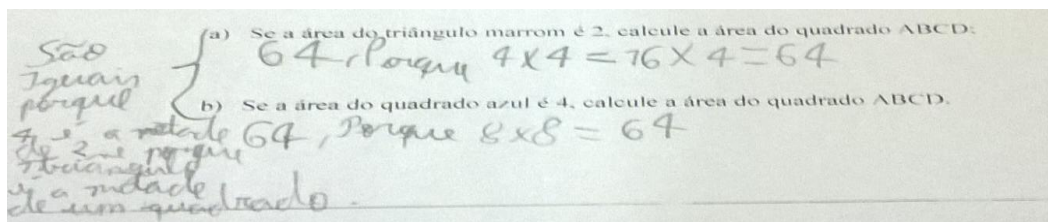 (a) Se a área do triângulo marrom é 2, calcule a área do quadrado ABCD:
64, Porque 4x4 = 16 x 4 = 64
b) Se a área do quadrado azul é 4, calcule a área do quadrado ABCD.
64, Porque 8x8 = 64
São
Iguais
porque
4 é a metade
de 2 e porque
triangulo
é a metade
de um quadrado.